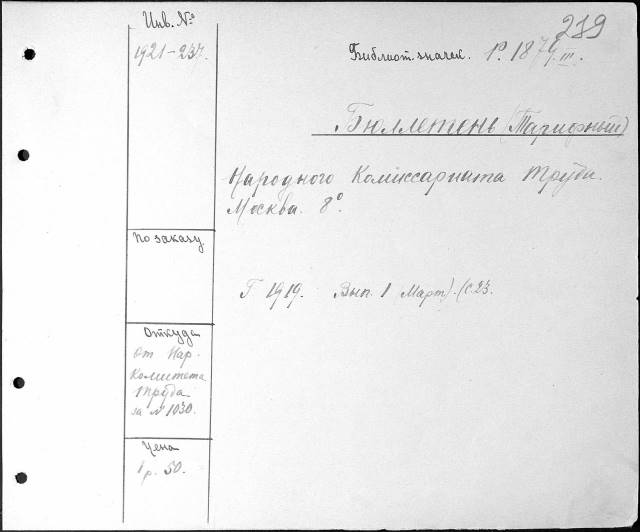 Инв. №
219
1921-237.
Библиот. значек. P. 187
Бюллетень (Тарифный)
Народного Комиссариата Труда.
Москва. 8°.
По заказу
Г 1919. Вып. 1 Март). (с 23.
Откуда
От Нар-
комитета
труда
за № 1030.
Цена
1 р. 50.